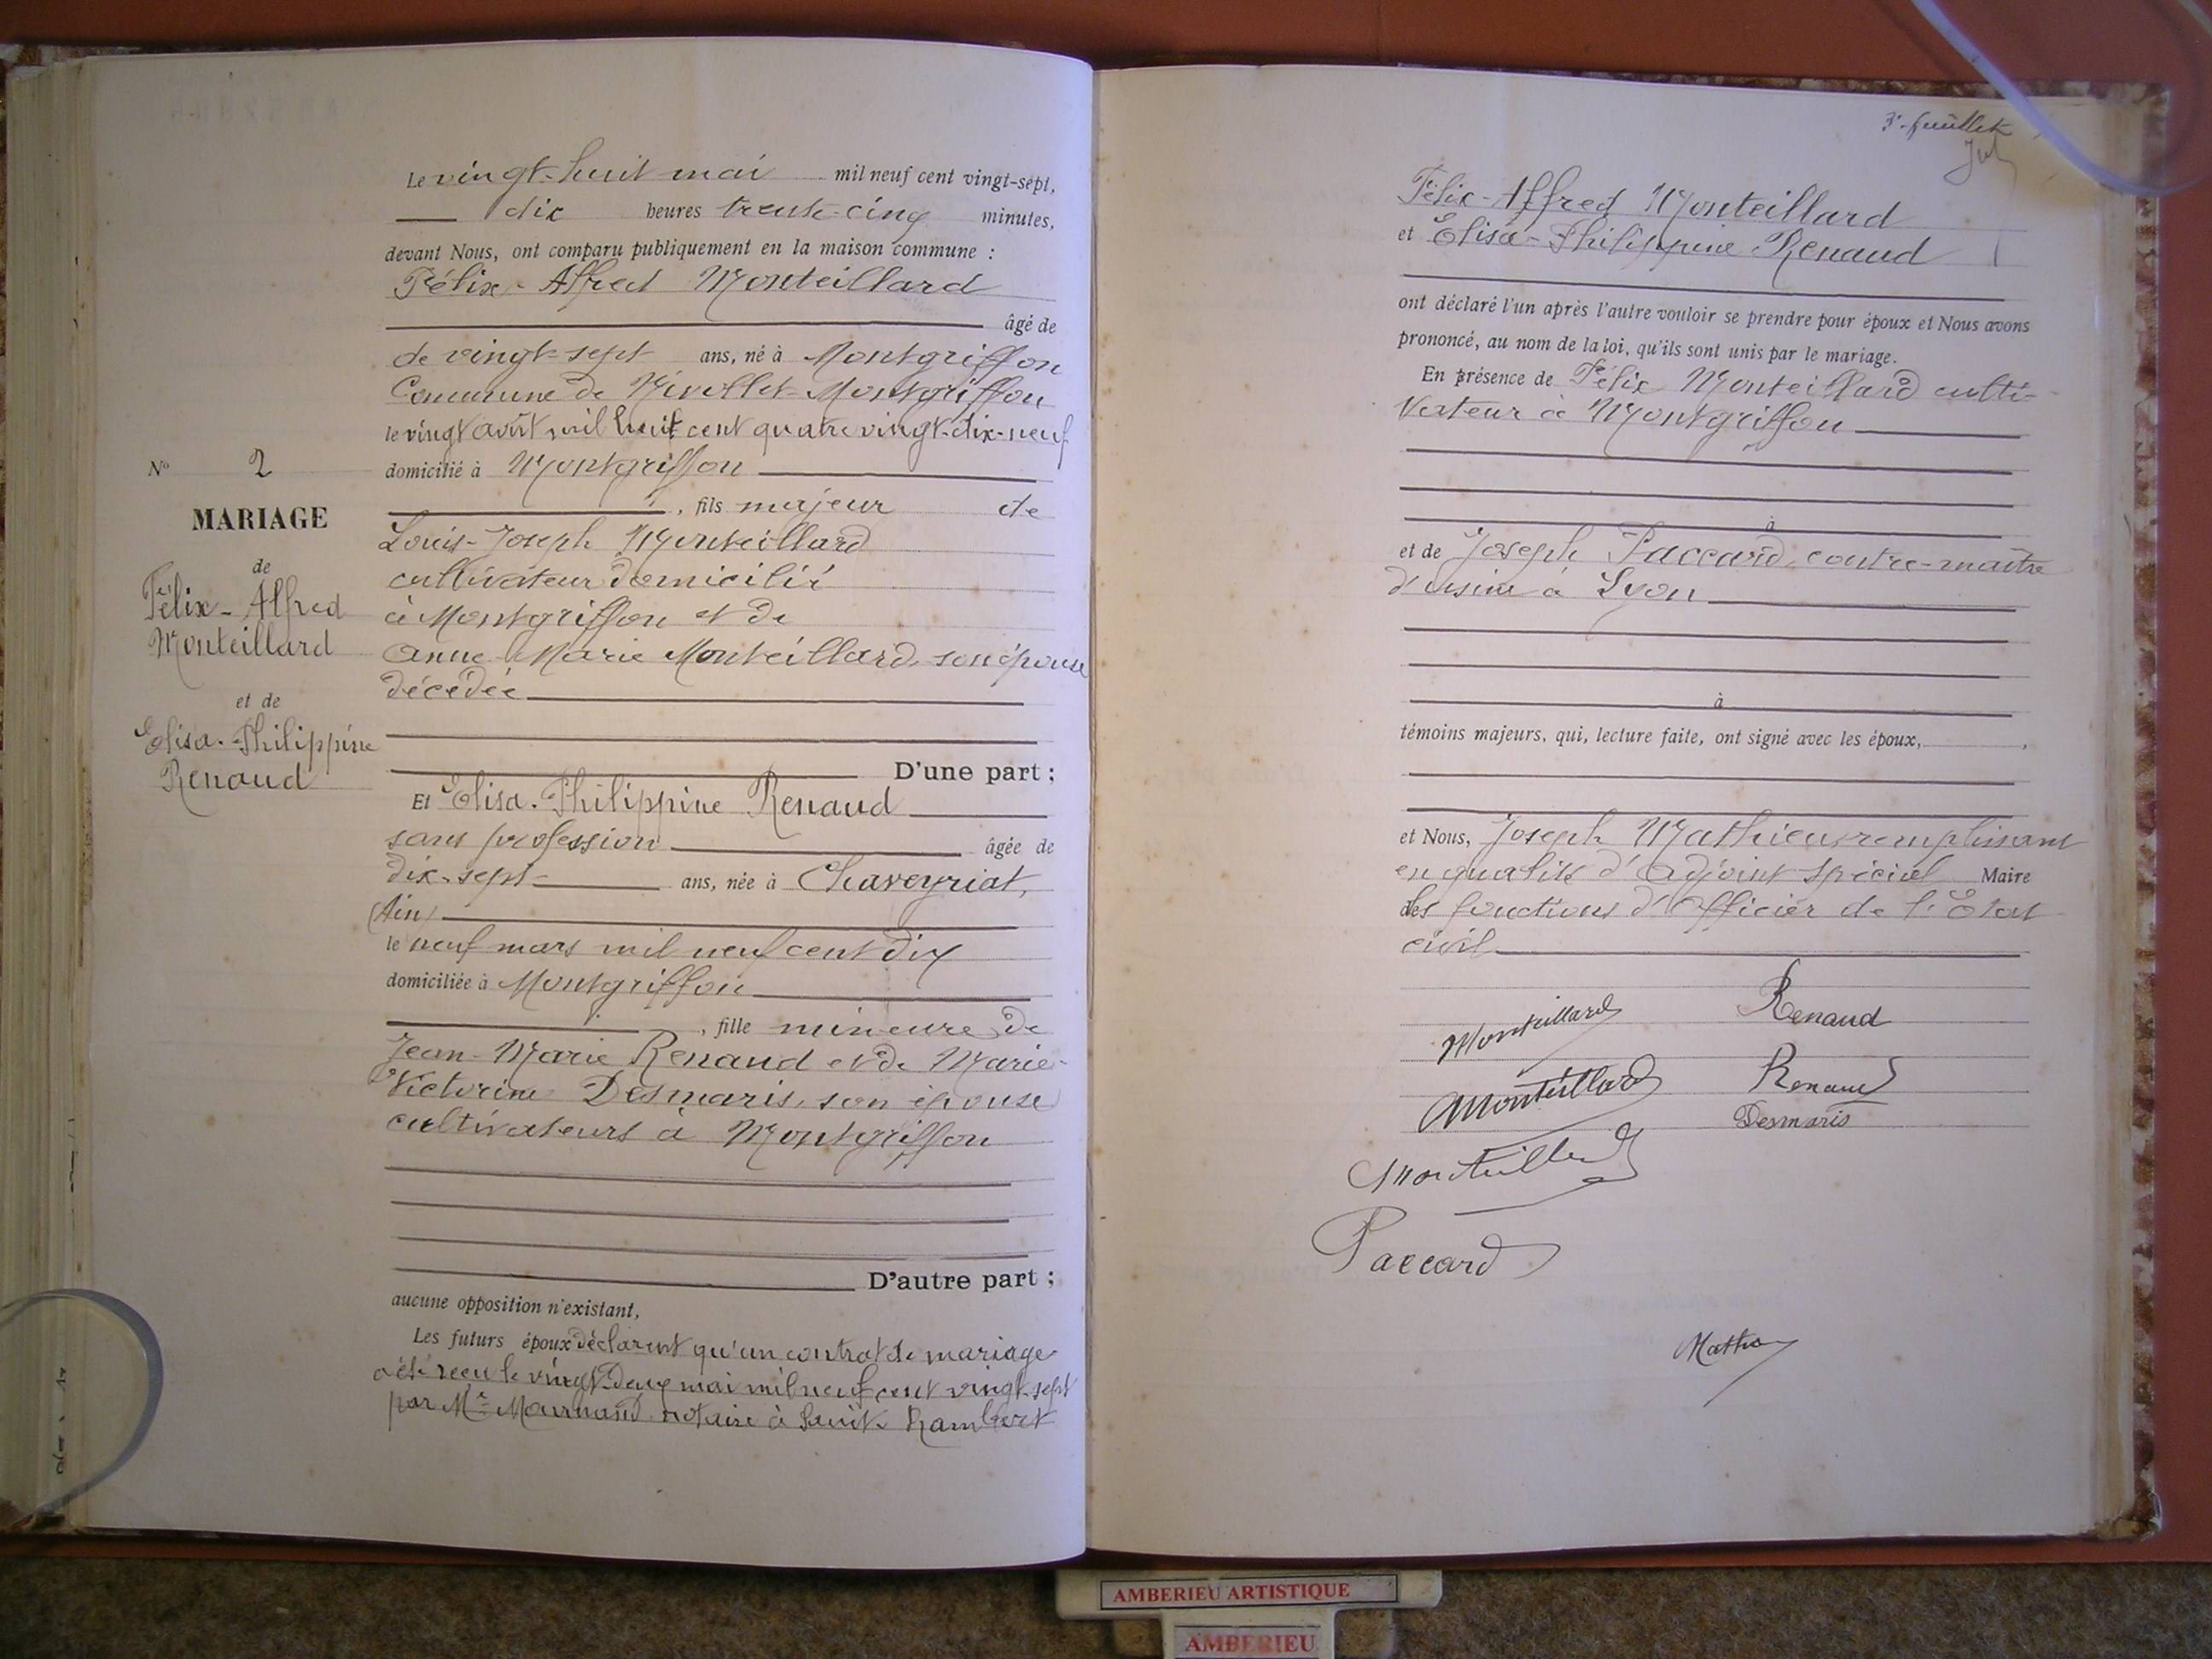 Le vingt-huit mai mil neuf cent vingt-sept,
dix heures trente-cinq minutes,
devant Nous, ont comparu publiquement en la maison commune :
Félix-Alfred Monteillard
âgé de
de vingt-sept ans, né à Montgriffon
Commune de Nivollet-Montgriffon
le vingt avril mil huit cent quatre vingt-dix-neuf
domicilié à Montgriffon
, fils majeur de
Louis-Joseph Monteillard
cultivateur domicilié
à Montgriffon et de
Anne-Marie Monteillard, son épouse
décédée
D'une part ;
Et Elisa-Philippine Renaud
sans profession âgée de
dix-sept ans, née à Chaveyriat,
(Ain)
le neuf mars mil neuf cent dix
domiciliée à Montgriffon
, fille mineure de
Jean-Marie Renaud et de Marie-
Victorine Desmaris, son épouse
cultivateurs à Montgriffon
D'autre part ;
aucune opposition n'existant,
Les futurs époux déclarent qu'un contrat de mariage
a été reçu le vingt-deux mai mil neuf cent vingt-sept
par Me notaire à Saint-Rambert
No 2
MARIAGE
de
Félix-Alfred
Monteillard
et de
Elisa-Philippine
Renaud
3e feuillet
Félix-Alfred Monteillard
et Elisa-Philippine Renaud
ont déclaré l'un après l'autre vouloir se prendre pour époux et Nous avons
prononcé, au nom de la loi, qu'ils sont unis par le mariage.
En présence de Félix Monteillard culti-
vateur à Montgriffon
à
et de Joseph Paccard, contre-maître
d'usine à Lyon
à
témoins majeurs, qui, lecture faite, ont signé avec les époux,
et Nous, Joseph Mathieu, remplissant
en qualité d'adjoint spécial Maire
des fonctions d'Officier de l'Etat
civil
Monteillard Renaud
Monteillard Renaud
Desmaris
Monteillard
Paccard
AMBERIEU ARTISTIQUE
AMBERIEU